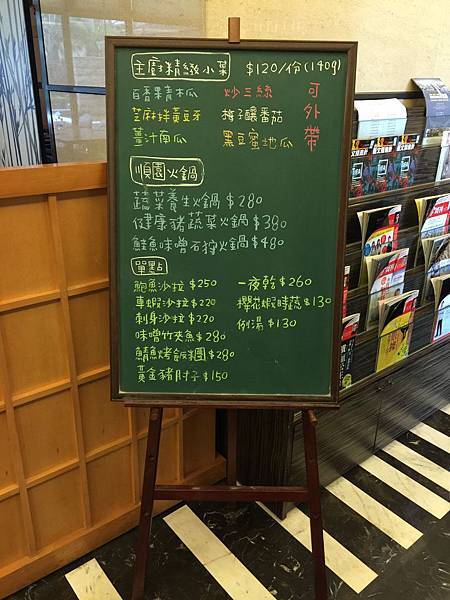 主廚精緻小菜 $120/份(140g)
百香果青木瓜 炒三絲 可外帶
芝麻拌黃豆芽 梅子釀番茄
薑汁南瓜 黑豆蜜地瓜
順園火鍋
蔬菜養生火鍋 $280
健康豬蔬菜火鍋 $380
鮭魚味噌石狩火鍋 $480
單點
鮑魚沙拉 $250 一夜乾 $260
草蝦沙拉 $220 櫻花蝦時蔬 $130
刺身沙拉 $220 例湯 $130
味噌竹夾魚 $280
鯖魚烤飯糰 $280
黃金豬肘子 $150